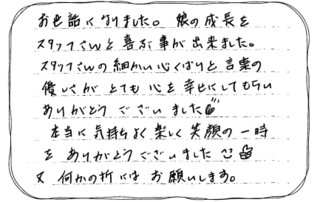 お世話になりました。娘の成長を
スタッフさんと喜ぶ事が出来ました。
スタッフさんの細かい心くばりと言葉の
優しさが とても心を幸せにしてもらい
ありがとう ございました
本当に気持ちよく楽しく笑顔の一時
を ありがとうございました
又 何かの折には お願いします。